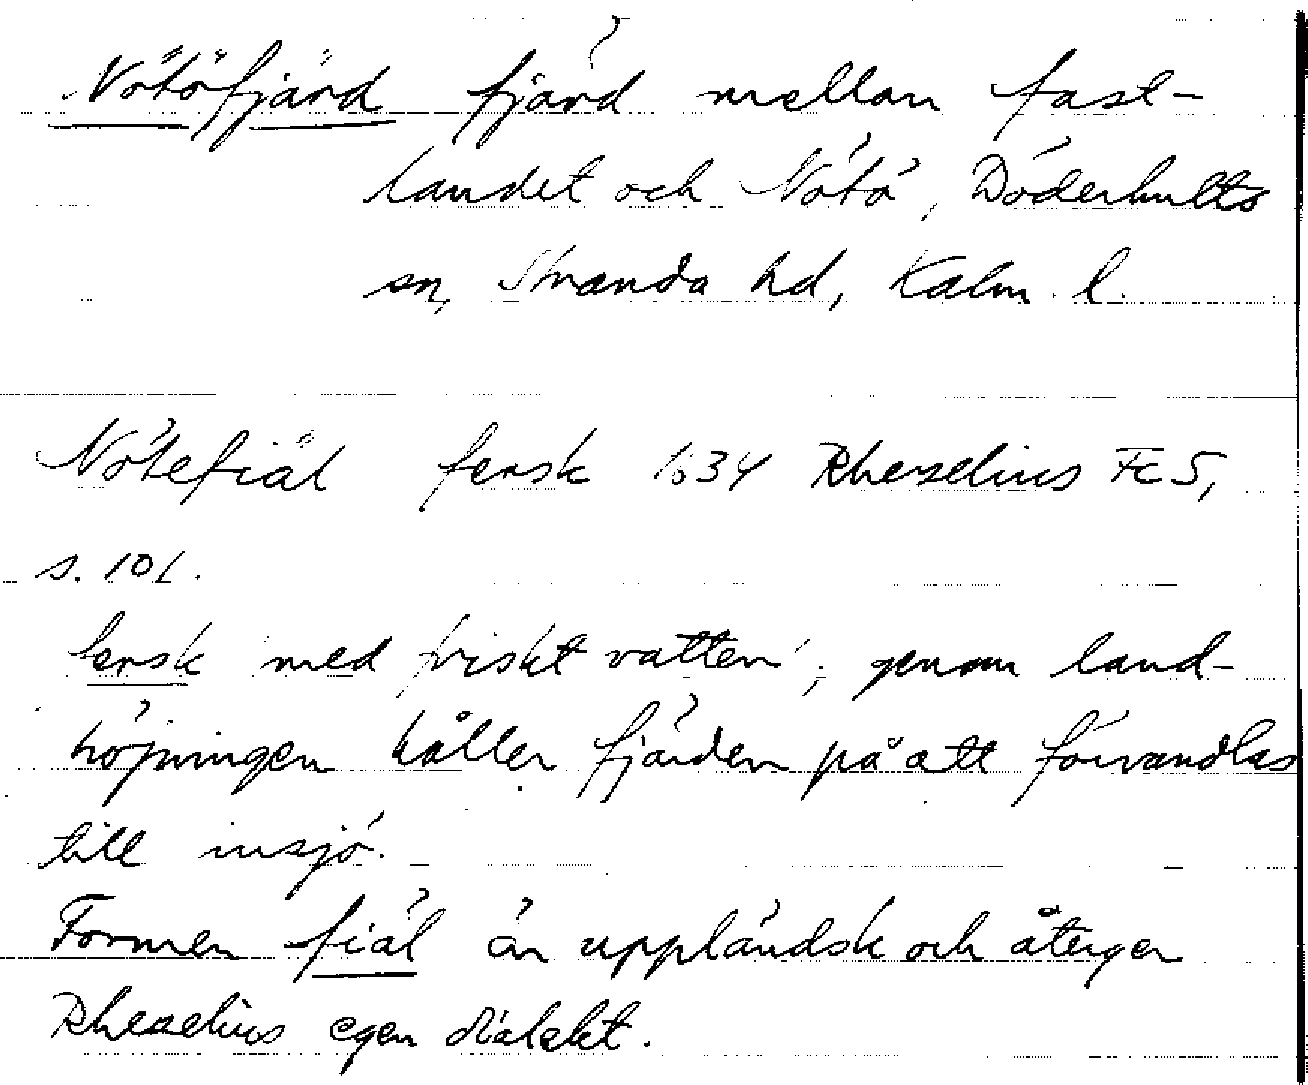 Nötöfjärd fjärd mellan fast-
landet och Nötö, Döderhults
sn, Stranda hd, Kalm. l.
Nötefiäl fersk 1634 Rhezelius Fc 5,
s. 101.
fersk 'med friskt vatten'; genom land-
höjningen håller fjärden på att förvandlas
till insjö.
Formen fiäl är uppländsk och återger
Rhezelius egen dialekt.